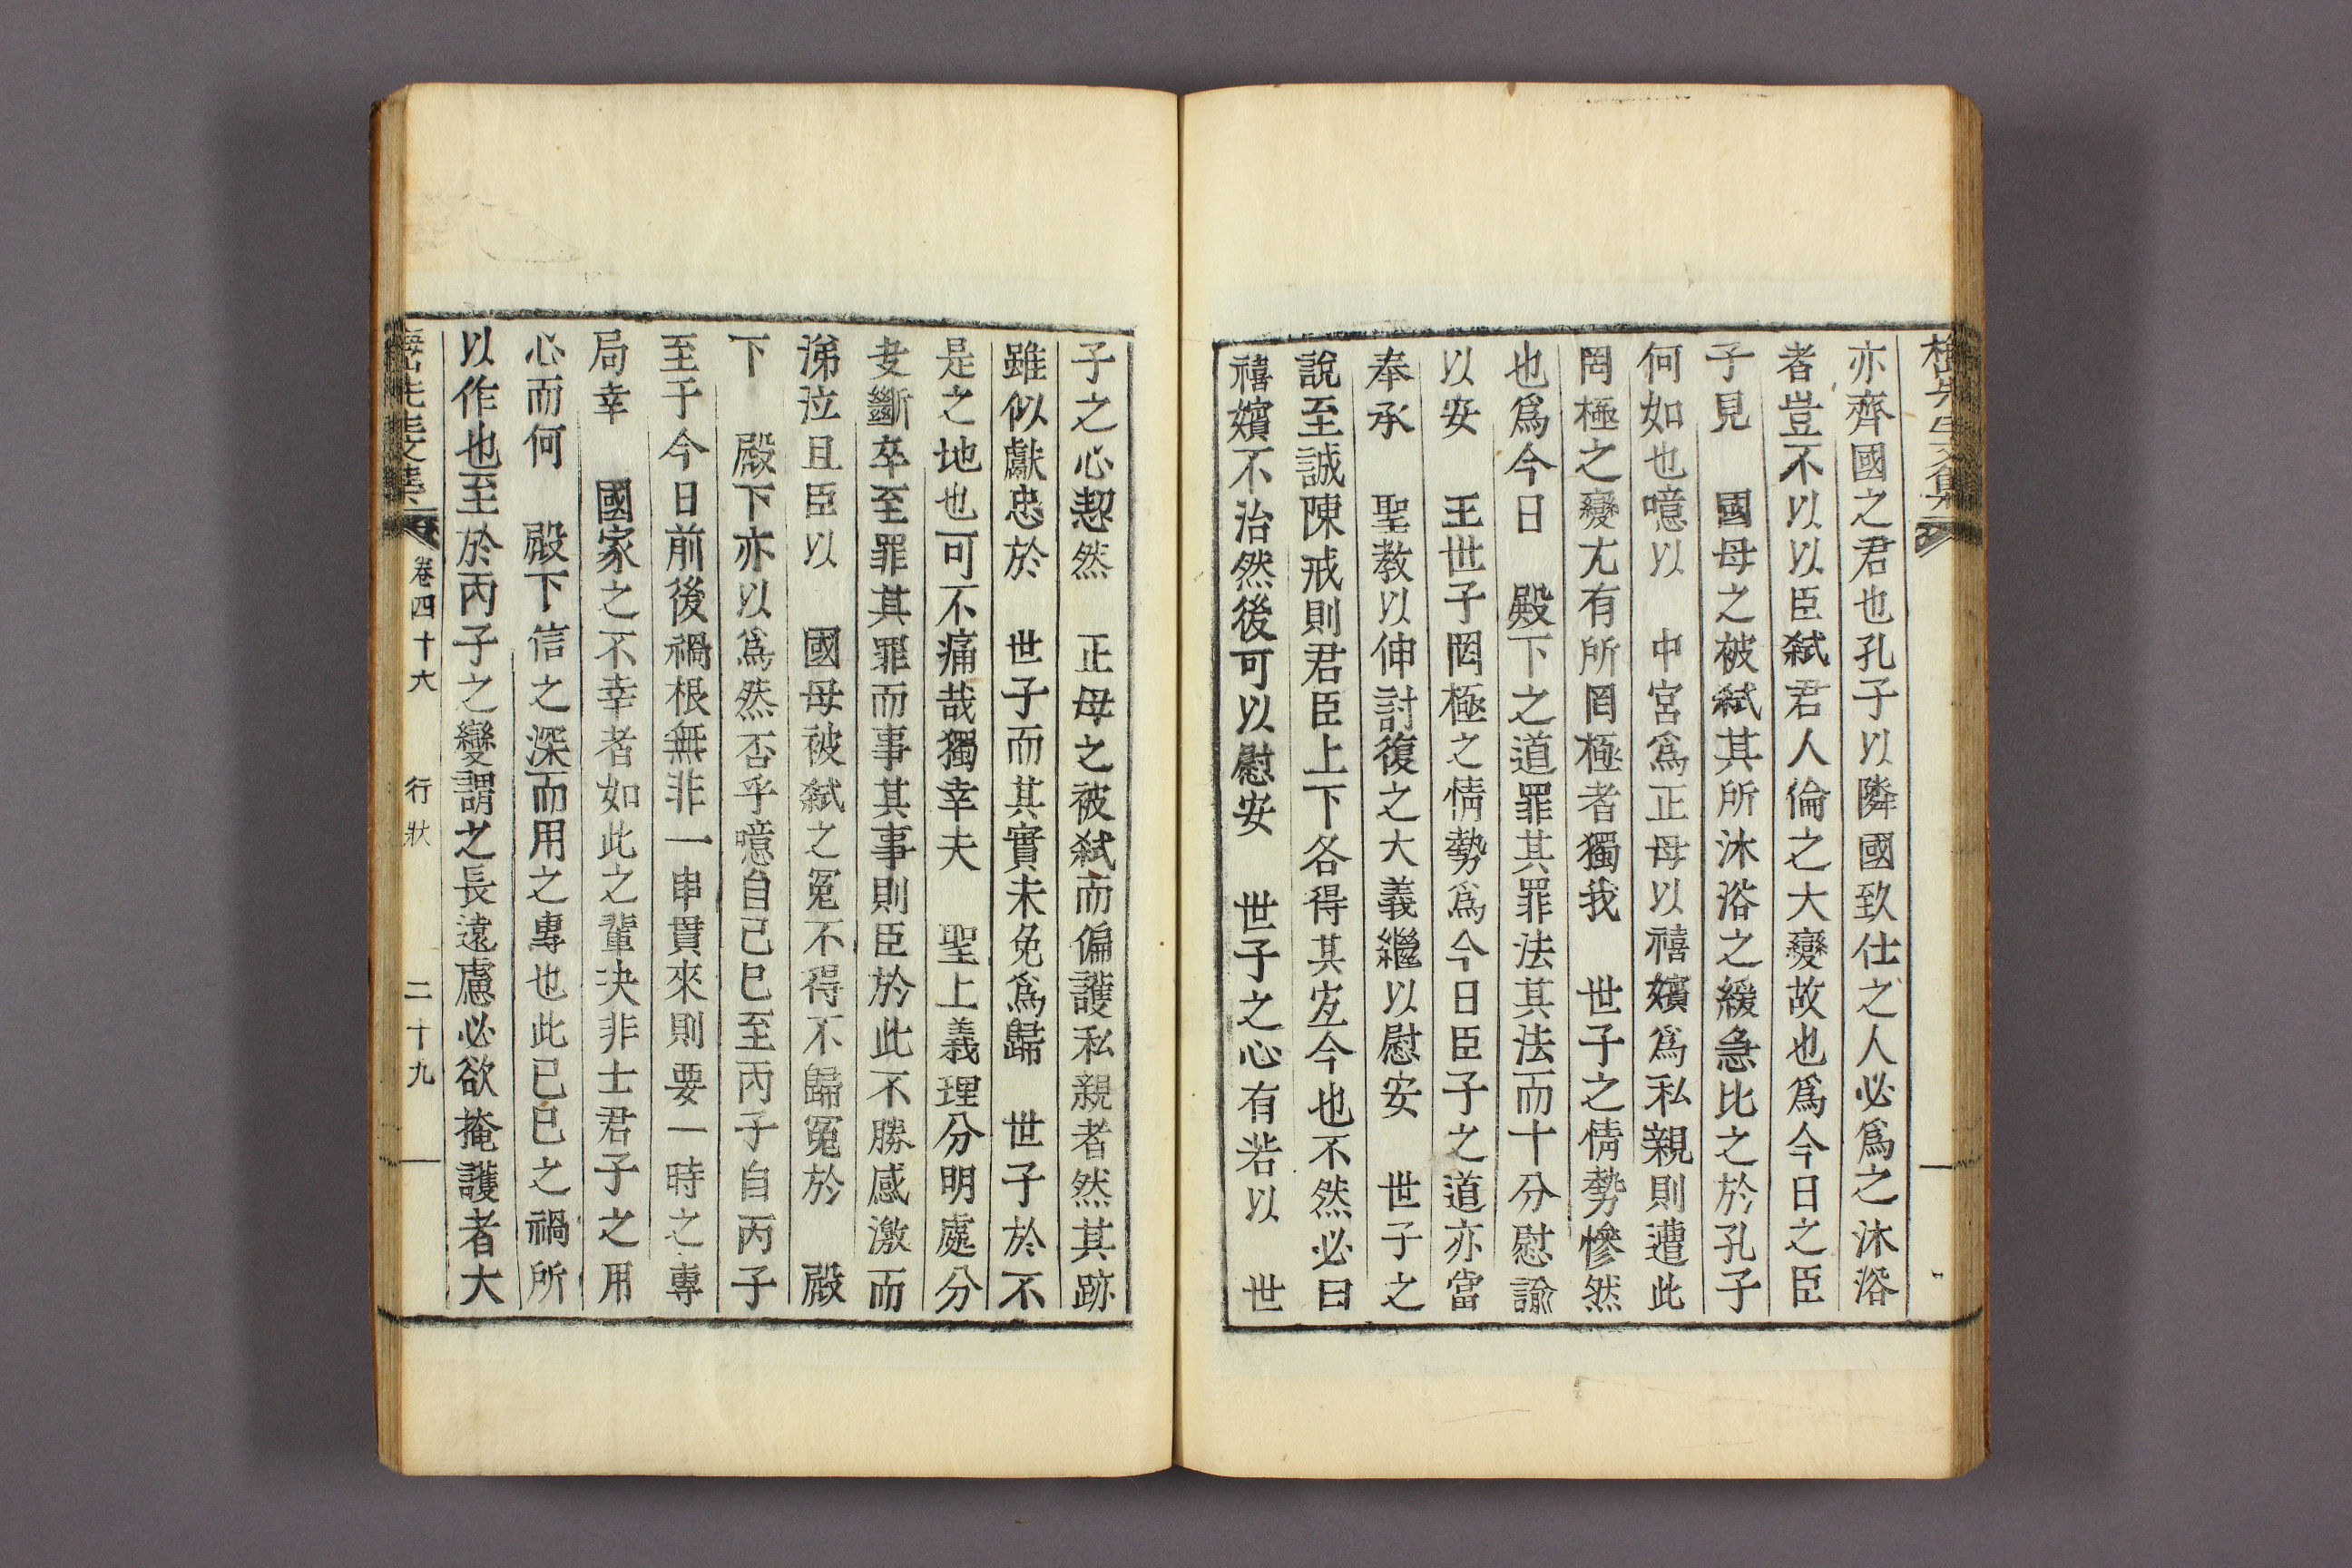 梅山先生文集
亦齊國之君也孔子以隣國致仕之人必爲之沐浴
者豈不以以臣弑君人倫之大變故也爲今日之臣
子見　國母之被弑其所沐浴之緩急比之於孔子
何如也噫以　中宮爲正母以禧嬪爲私親則遭此
罔極之變尤有所罔極者獨我　世子之情勢慘然
也爲今日　殿下之道罪其罪法其法而十分慰諭
以安　王世子罔極之情勢爲今日臣子之道亦當
奉承　聖教以伸討復之大義繼以慰安　世子之
說至誠陳戒則君臣上下各得其宜今也不然必曰
禧嬪不治然後可以慰安　世子之心有若以　世
子之心恝然　正母之被弑而偏護私親者然其跡
雖似獻忠於　世子而其實未免爲歸　世子於不
是之地也可不痛哉獨幸夫　聖上義理分明處分
夬斷卒至罪其罪而事其事則臣於此不勝感激而
涕泣且臣以　國母被弑之冤不得不歸冤於　殿
下　殿下亦以爲然否乎噫自己巳至丙子自丙子
至于今日前後禍根無非一串貫來則要一時之專
局幸　國家之不幸者如此之輩决非士君子之用
心而何　殿下信之深而用之專也此己巳之禍所
以作也至於丙子之變謂之長遠慮必欲掩護者大
梅山先生文集　卷四十六　行狀　二十九